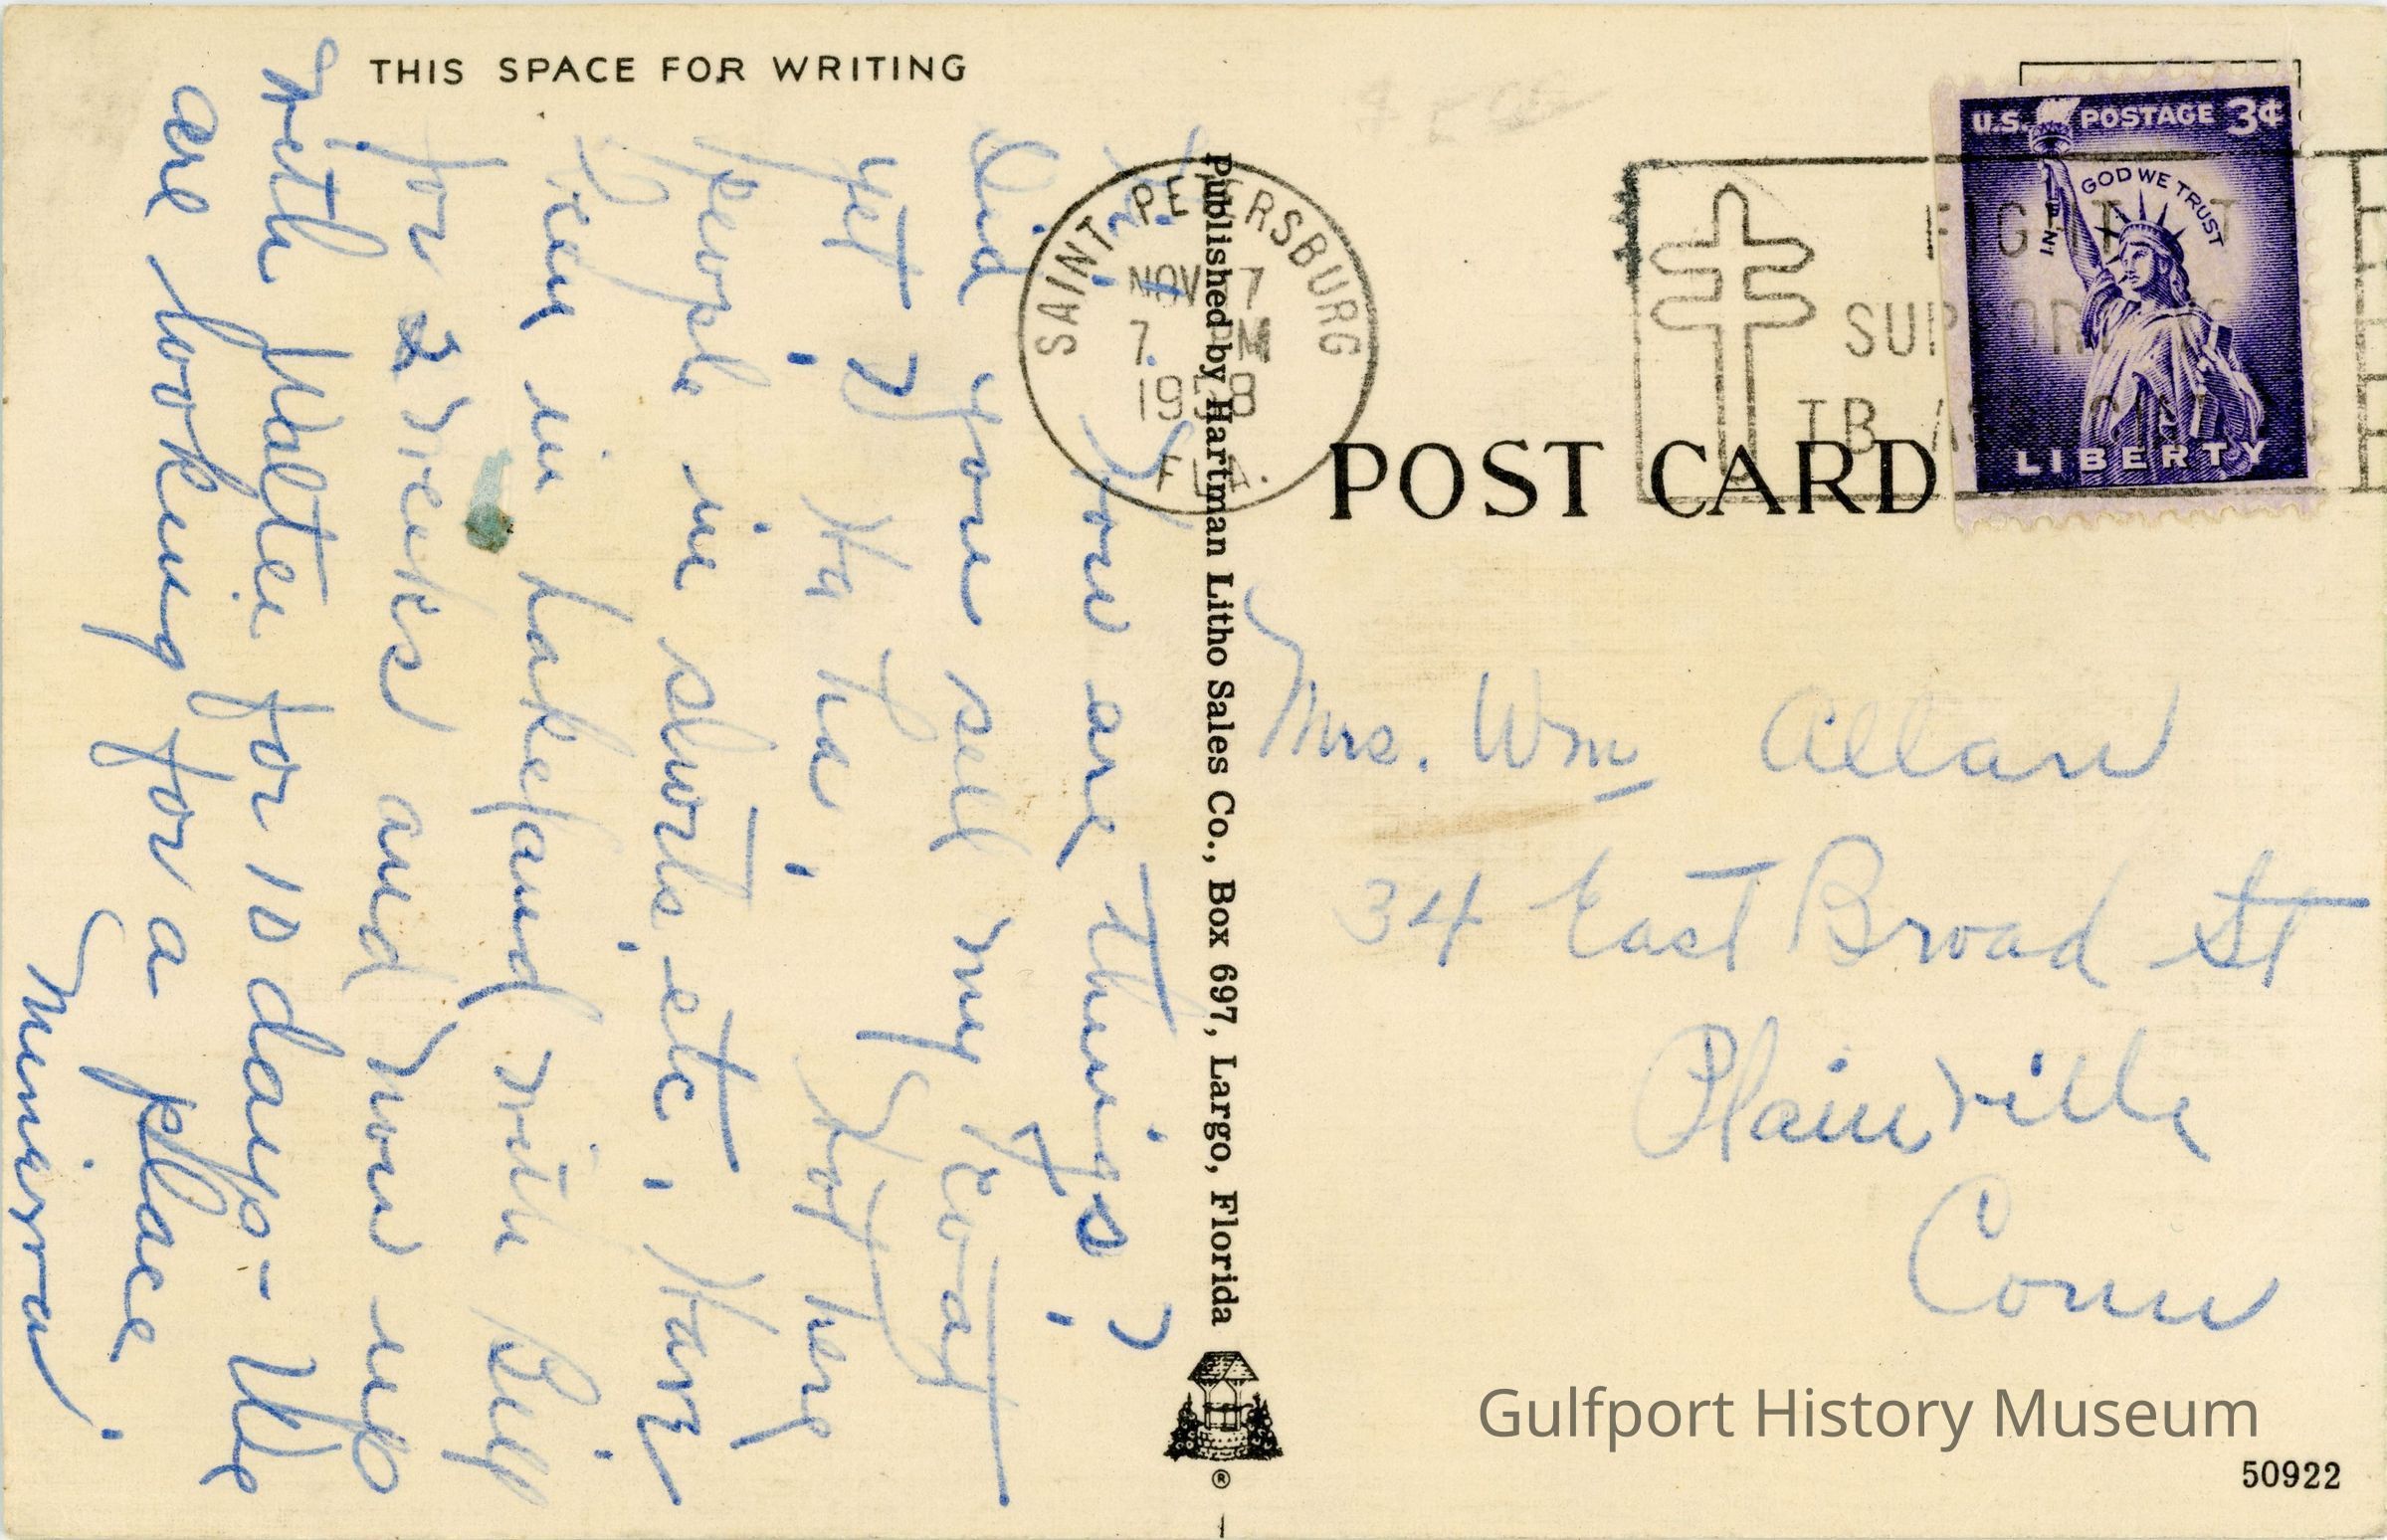 THIS SPACE FOR WRITING
Hi: How are things?
Did you sell my coat
yet? Ha ha. Hot here
people in shorts, etc.
in Lakeland with Bill
for 2 weeks and now up
with Walter for 10 days - We
are looking for a place
Minerva.
Published by Hartman Litho Sales Co., Box 697, Largo, Florida
®
SAINT PETERSBURG
NOV 7
7 PM
1958
FLA.
FIGHT T
SUPPORT
TB
U.S. POSTAGE 3¢
IN GOD WE TRUST
LIBERTY
POST CARD
Mrs. Wm Allan
34 East Broad St
Plainville
Conn
Gulfport History Museum
50922